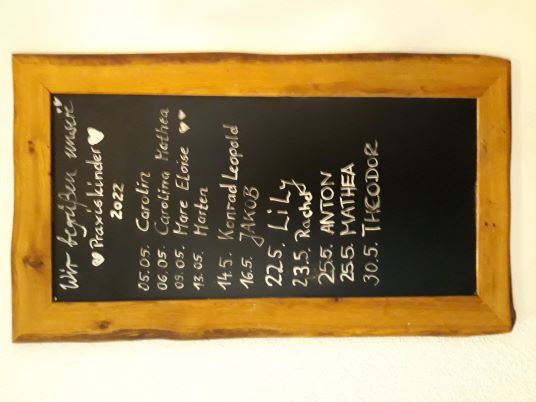 Wir begrüßen unsere
Praxiskinder
2022
05.05. Carolin
06.05. Carolina Mathea
09.05. Mare Eloise
13.05. Morten
14.5. Konrad Leopold
16.5. JAKOB
22.5. LiLy
23.5. Rachel
25.5. ANTON
25.5. MATHEA
30.5. THEODOR